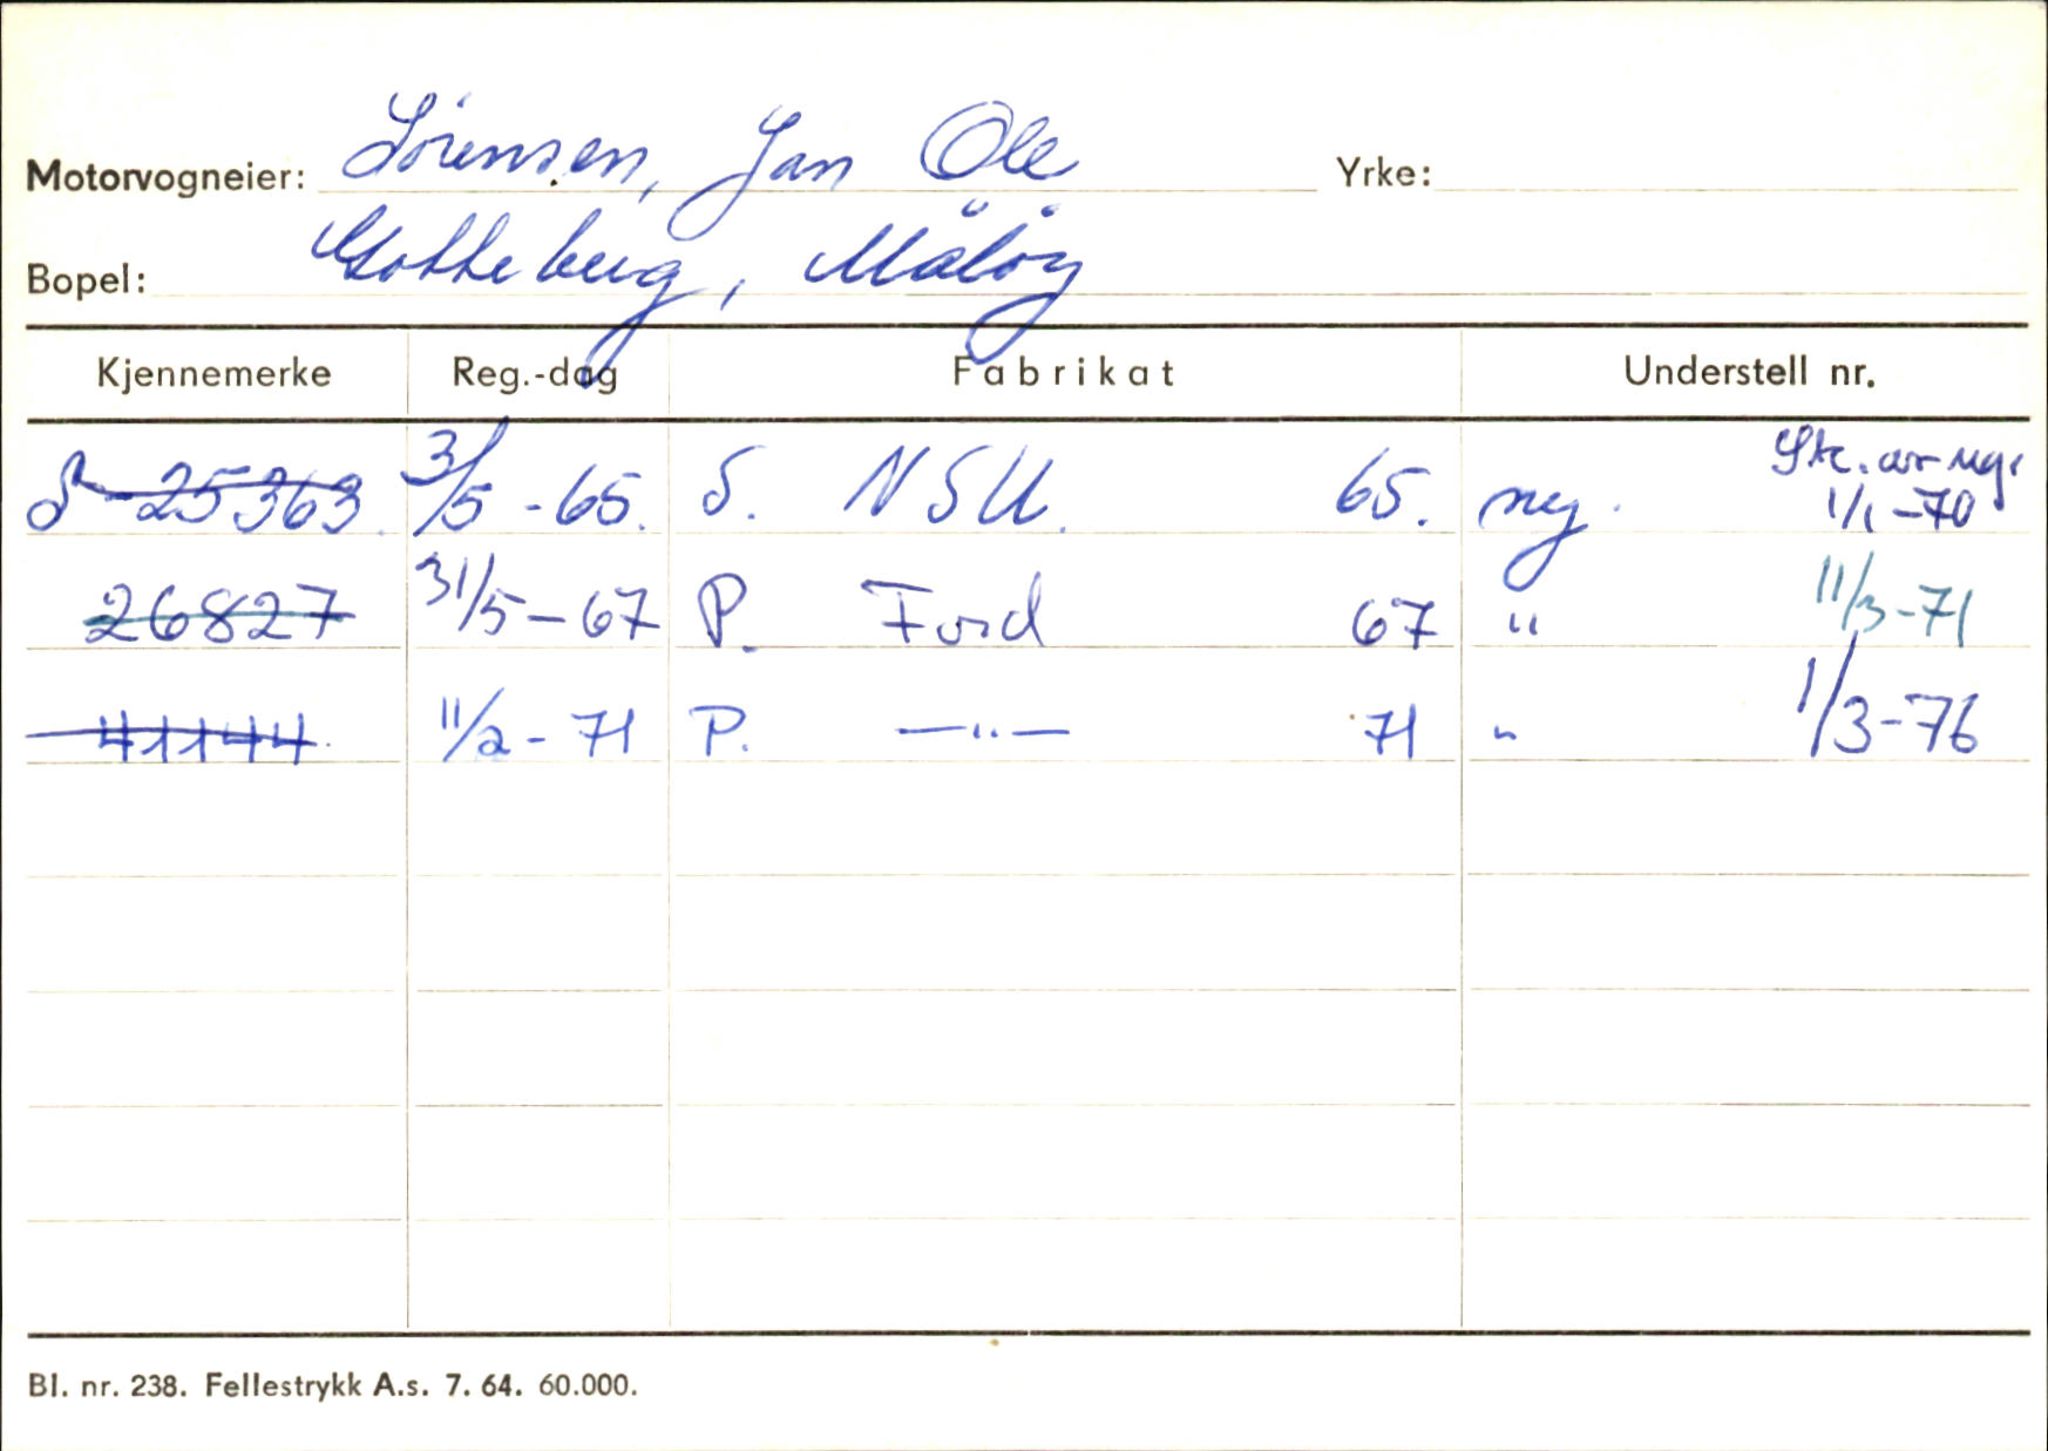 Motorvogneier: Sörensen, Jan Ole Yrke:
Bopel: Gotteberg, Målöy
Kjennemerke Reg.-dag Fabrikat Understell nr.
S-25363. 3/5-65. S. NSU. 65. ny. Str. av reg. 1/1-70
26827 31/5-67 P. Ford 67 " 11/3-71
41144 11/2-71 P. —"— 71 " 1/3-76
Bl. nr. 238. Fellestrykk A.s. 7. 64. 60.000.